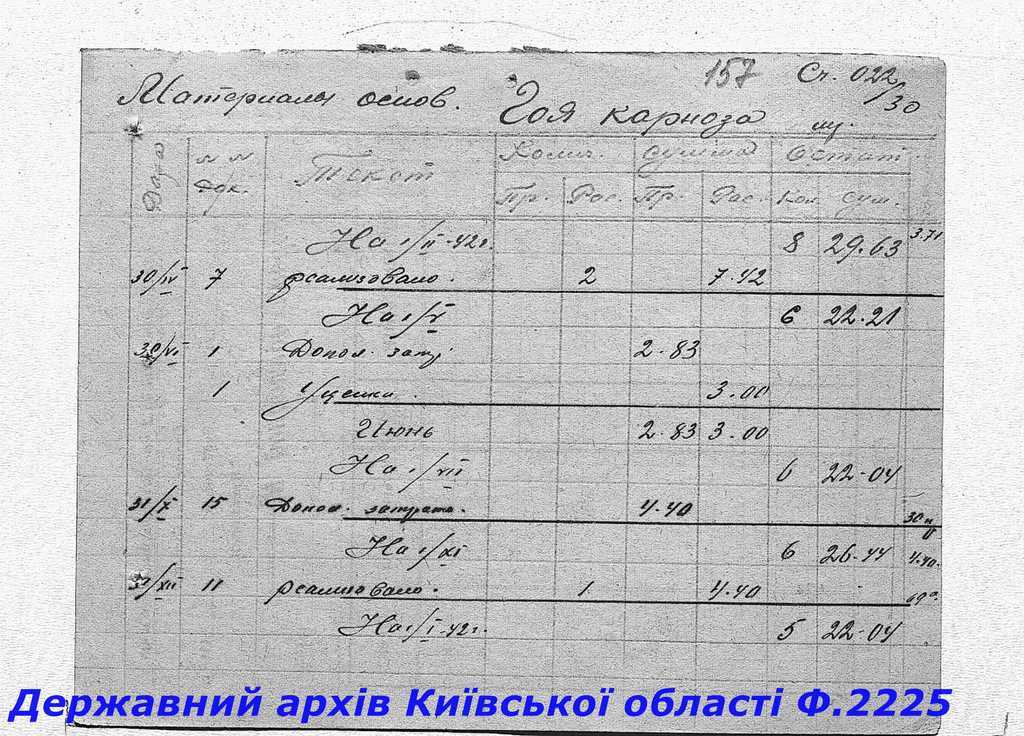 157 Сч. 022/30
Материалы основ. Гоя карноза
Дата № № док. Текст Колич. Сумма Остат.
Пр. Рас. Пр. Рас. Кол. Сум.
На 1/II-42г. 8 29.63 3.71
30/IV 7 реализовано. 2 7.42
На 1/V 6 22.21
30/VI 1 Допол. затр 2.83
1 Уценка. 3.00
Июнь 2.83 3.00
На 1/VII 6 22-04
31/X 15 Допол. затрато. 4.40
На 1/XI 6 26.44 4.40.
31/XII 11 реализовало. 1 4.40
На 1/I-42г. 5 22-04
Державний архів Київської області Ф.2225